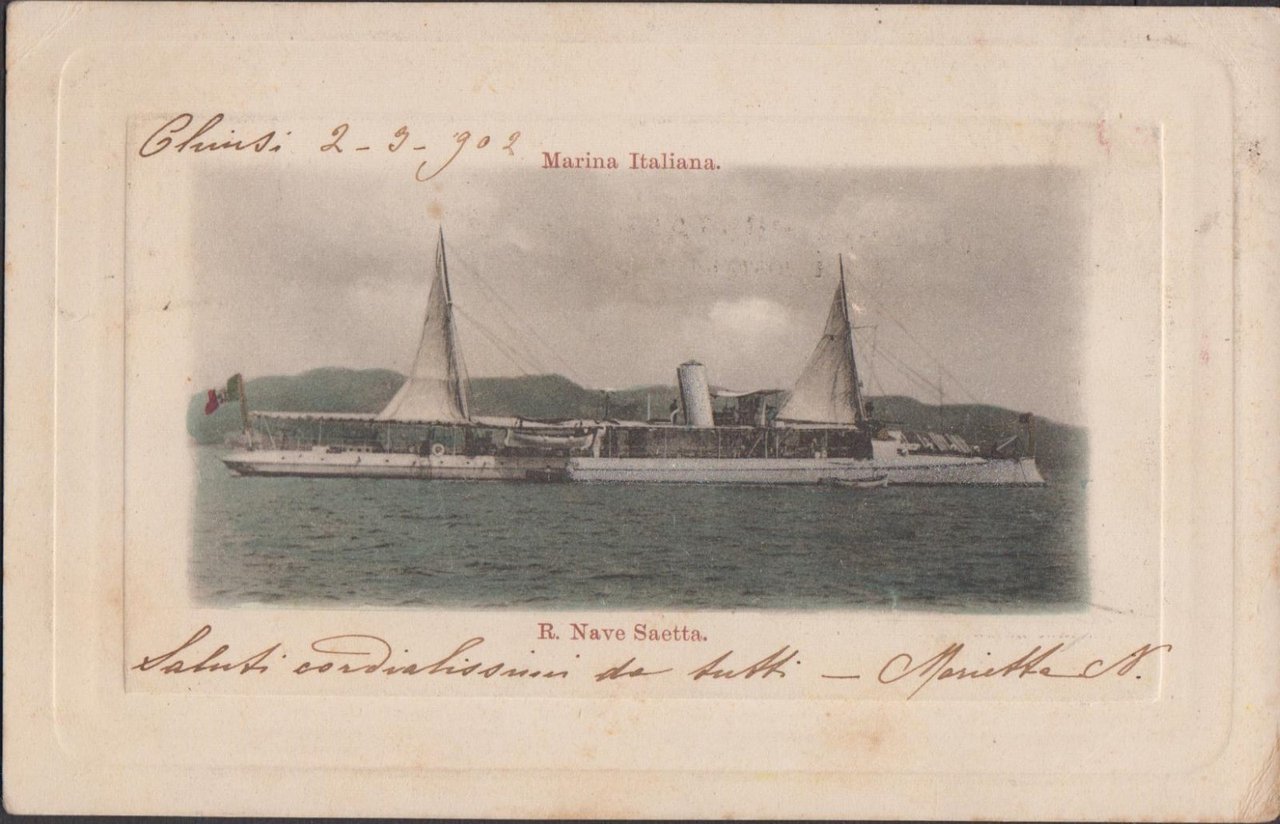 Chiusi 2 - 3 - 902
Marina Italiana.
R. Nave Saetta.
Saluti cordialissimi da tutti — Marietta N.